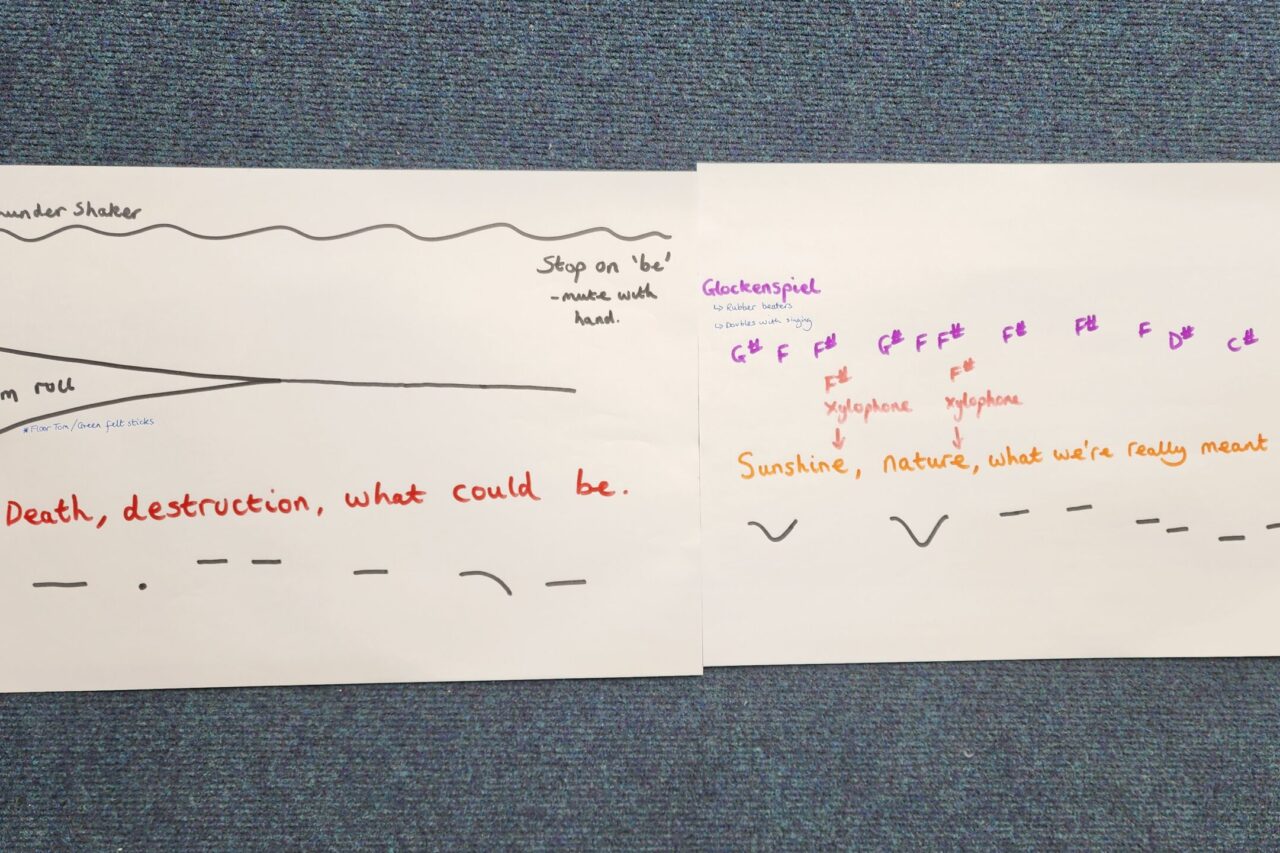 under Shaker
Stop on 'be'
- mute with
hand.
m roll
* Floor Tom / Green felt sticks
Death, destruction, what could be.
Glockenspiel
↳ Rubber beaters
↳ Doubles with singing
G# F F# G# F F# F# F# F D# C#
F# F#
xylophone xylophone
Sunshine, nature, what we're really meant